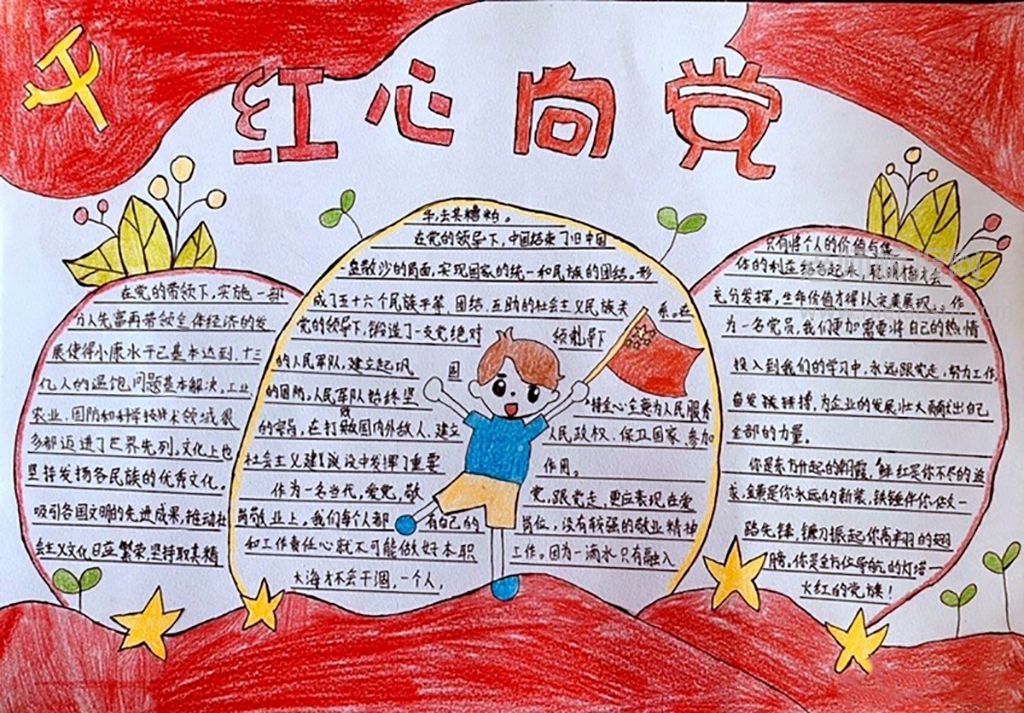 红心向党
在党的带领下，实施一部
分人先富再带领全体经济的发
展使得小康水平已基本达到，十三
亿人的温饱问题基本解决。工业
农业、国防和科学技术领域很
多都迈进了世界先列。文化上也
坚持发扬各民族的优秀文化。
吸引各国文明的先进成果，推动社
会主义文化日益繁荣坚持取其精
华，去其糟粕。
在党的领导下，中国结束了旧中国
一盘散沙的局面，实现国家的统一和民族的团结。形
成了五十六个民族平等、团结、互助的社会主义民族关系。在
党的领导下，锻造了一支党绝对 领导下
的人民军队，建立起巩 固
的国防。人民军队始终坚 持全心全意为人民服务
的宗旨，在打败国内外敌人、建立 人民政权、保卫国家、参加
社会主义建设中发挥了重要 作用。
作为一名当代，爱党，敬 党，跟党走，更应表现在爱
岗敬业上。我们每个人都 有自己的 岗位，没有较强的敬业精神
和工作责任心就不可能做好本职 工作。因为一滴水只有融入
大海才不会干涸，一个人，
只有将个人的价值与集
体的利益结合起来，聪明才会
充分发挥，生命价值才得以完美展现。作
为一名党员，我们更加需要将自己的热情
投入到我们的学习中，永远跟党走，努力工作，
奋发拼搏，为企业的发展壮大献出自己
全部的力量。
你是东方升起的朝霞，鲜红是你不尽的追
求，是你永远的新装，铁锤伴你一
路先锋，镰刀振起你高翔的翅
膀，你是全方位导航的灯塔一
火红的党旗！